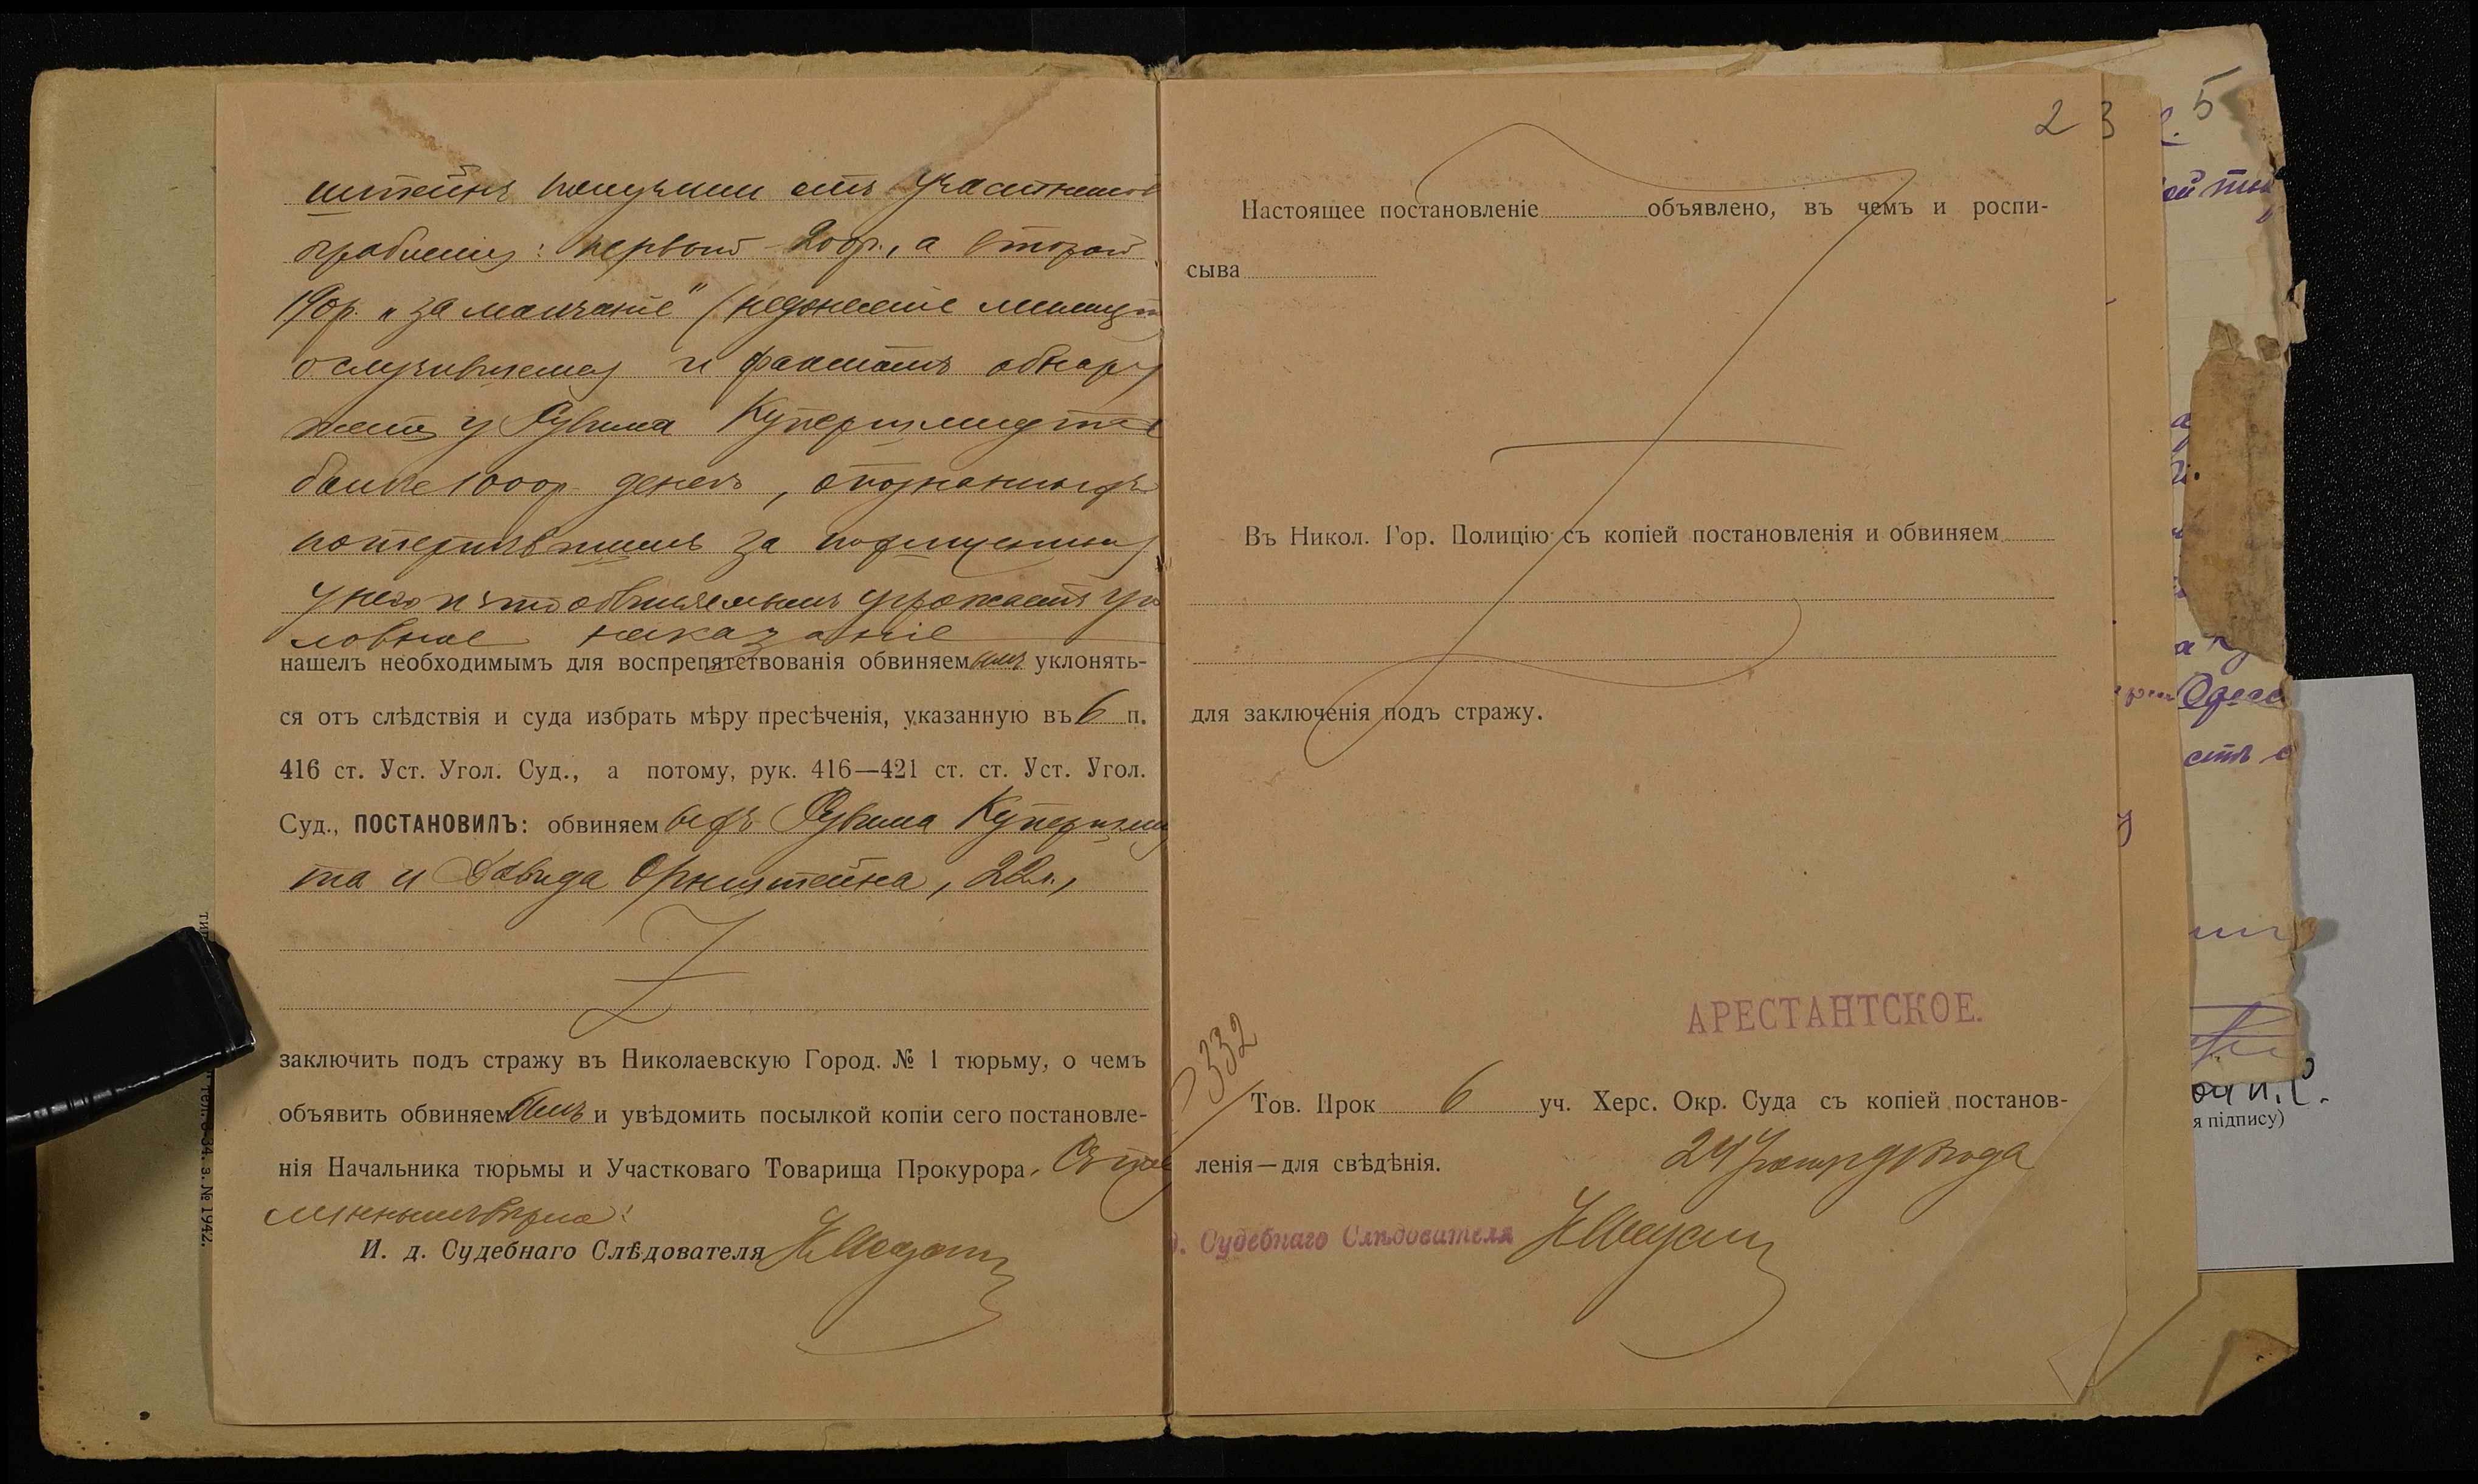 штейнъ получили отъ участников
ограбленія: первый 200р., а второй
190р. „за молчаніе" (недонесеніе милиціи
о случившемся и фактомъ обнару
женія у Рувима Купершмидта
болѣе 1000р. денегъ, опознанныхъ
потерпѣвшимъ за похищенныя
у него и что обвиняемымъ угрожаетъ уго
ловное наказаніе
нашелъ необходимымъ для воспрепятствованія обвиняемымъ уклонять-
ся отъ слѣдствія и суда избрать мѣру пресѣченія, указанную въ 6 п.
416 ст. Уст. Угол. Суд., а потому, рук. 416—421 ст. ст. Уст. Угол.
Суд., ПОСТАНОВИЛЪ: обвиняемыхъ Рувима Купершмид
та и Давида Орнштейна, 22л.,
заключить подъ стражу въ Николаевскую Город. № 1 тюрьму, о чемъ
объявить обвиняемымъ и увѣдомить посылкой копіи сего постановле-
нія Начальника тюрьмы и Участковаго Товарища Прокурора.
И. д. Судебнаго Слѣдователя
з. № 1942.
23
5
Настоящее постановленіе объявлено, въ чемъ и роспи-
сыва
Въ Никол. Гор. Полицію съ копіей постановленія и обвиняем
для заключенія подъ стражу.
АРЕСТАНТСКОЕ.
332
Тов. Прок 6 уч. Херс. Окр. Суда съ копіей постанов-
ленія—для свѣдѣнія. 24
д. Судебнаго Слѣдователя
я підпису)